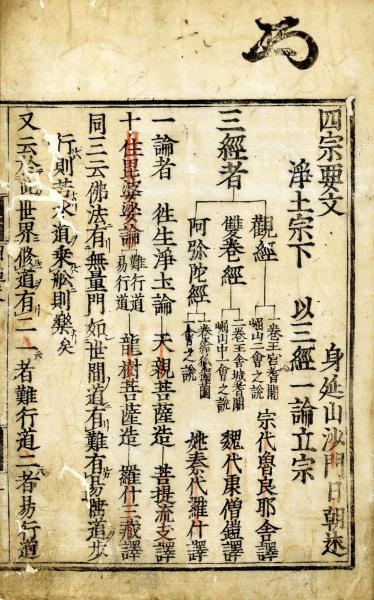 四宗要文 身延山沙門日朝述
淨土宗下 以三經一論立宗
三經者
觀經 二卷王宮耆闍崛山二會之説 宗代畺良耶舎譯
雙卷經 二卷王舎城耆闍崛山中一會之説 魏代康僧鎧譯
阿弥陀經 一會之説 姚秦代羅什譯
一論者 徃生淨土論 天親菩薩造 菩提流支譯
十住毘婆娑論 難行道 易行道 龍樹菩薩造 羅什三蔵譯
同三云佛法有無量門如世間道有難有易陸道歩
行則苦水道乗舩則樂矣
又云於此世界修道有二一者難行道二者易行道